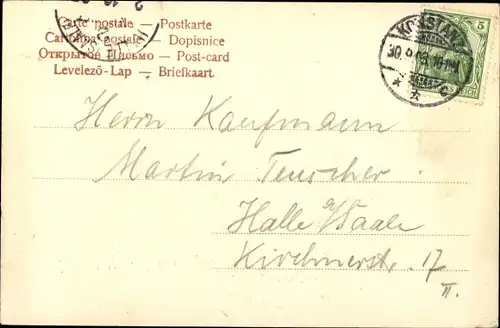 Carte postale — Postkarte
Cartolina postale — Dopisnice
Открытое Письмо — Post-card
Levelező-Lap — Briefkaart.
KONSTANZ
30.9.03. 10-11V
5
Herrn Kaufmann
Martin Teuscher
Halle a/Saale
Kirchnerstr. 17
II.